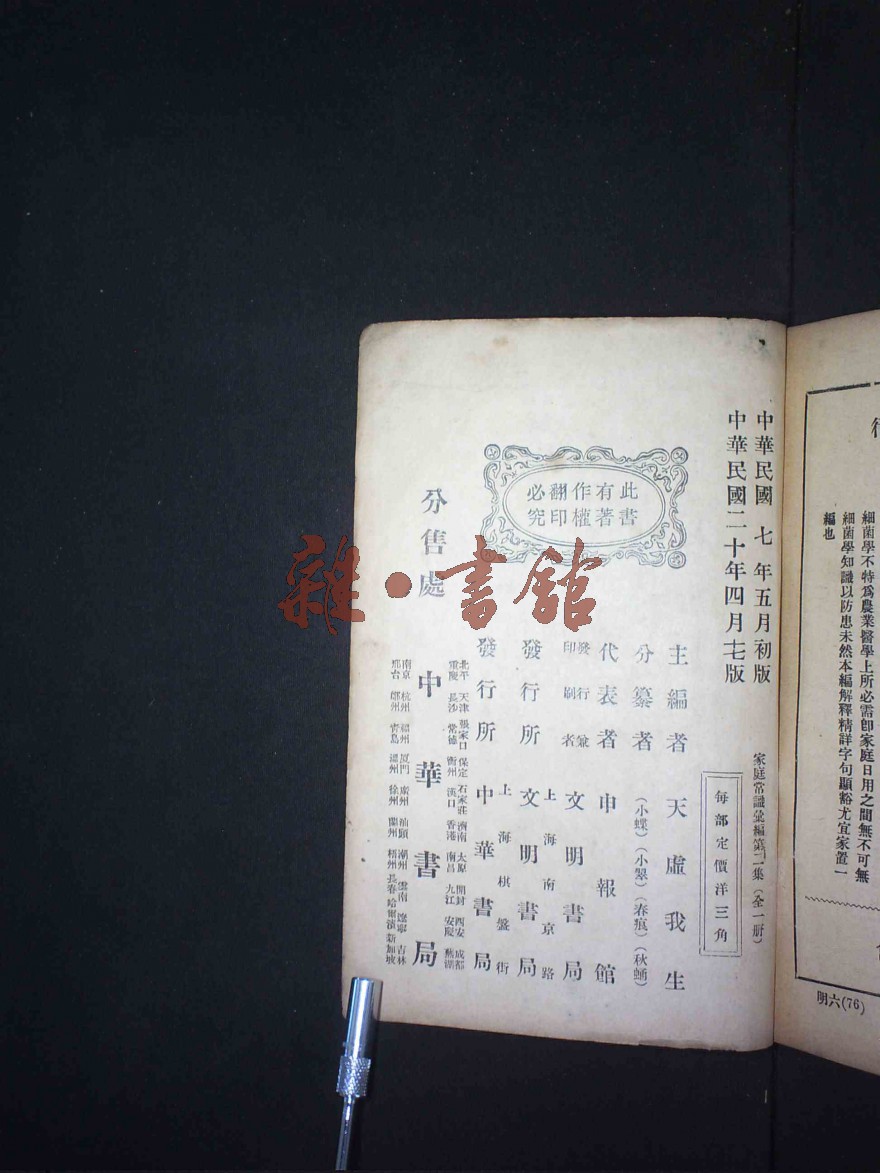 細菌學不特爲農業醫學上所必需卽家庭日用之間無不可無
細菌學知識以防患未然本編解釋精詳字句顯豁尤宜家置一
編也
明六(76)
中華民國七年五月初版
中華民國二十年四月七版
家庭常識彙編第二集(全一册)
每部定價洋三角
此書
有著
作權
翻印
必究
主編者 天虛我生
分纂者 (小蝶)(小翠)(春痕)(秋蛹)
代表者 申報館
發行兼
印刷者 文明書局
上海南京路
發行所 文明書局
上海棋盤街
發行所 中華書局
分售處 中華書局
北平 天津 張家口 保定 石家莊 濟南 太原 開封 西安 成都
重慶 長沙 常德 衡州 漢口 香港 南昌 九江 安慶 蕪湖
南京 杭州 福州 厦門 廣州 汕頭 潮州 雲南 遼寧 吉林
邢台 鄭州 青島 溫州 徐州 蘭州 梧州 長春 哈爾濱 新加坡
雜·書館